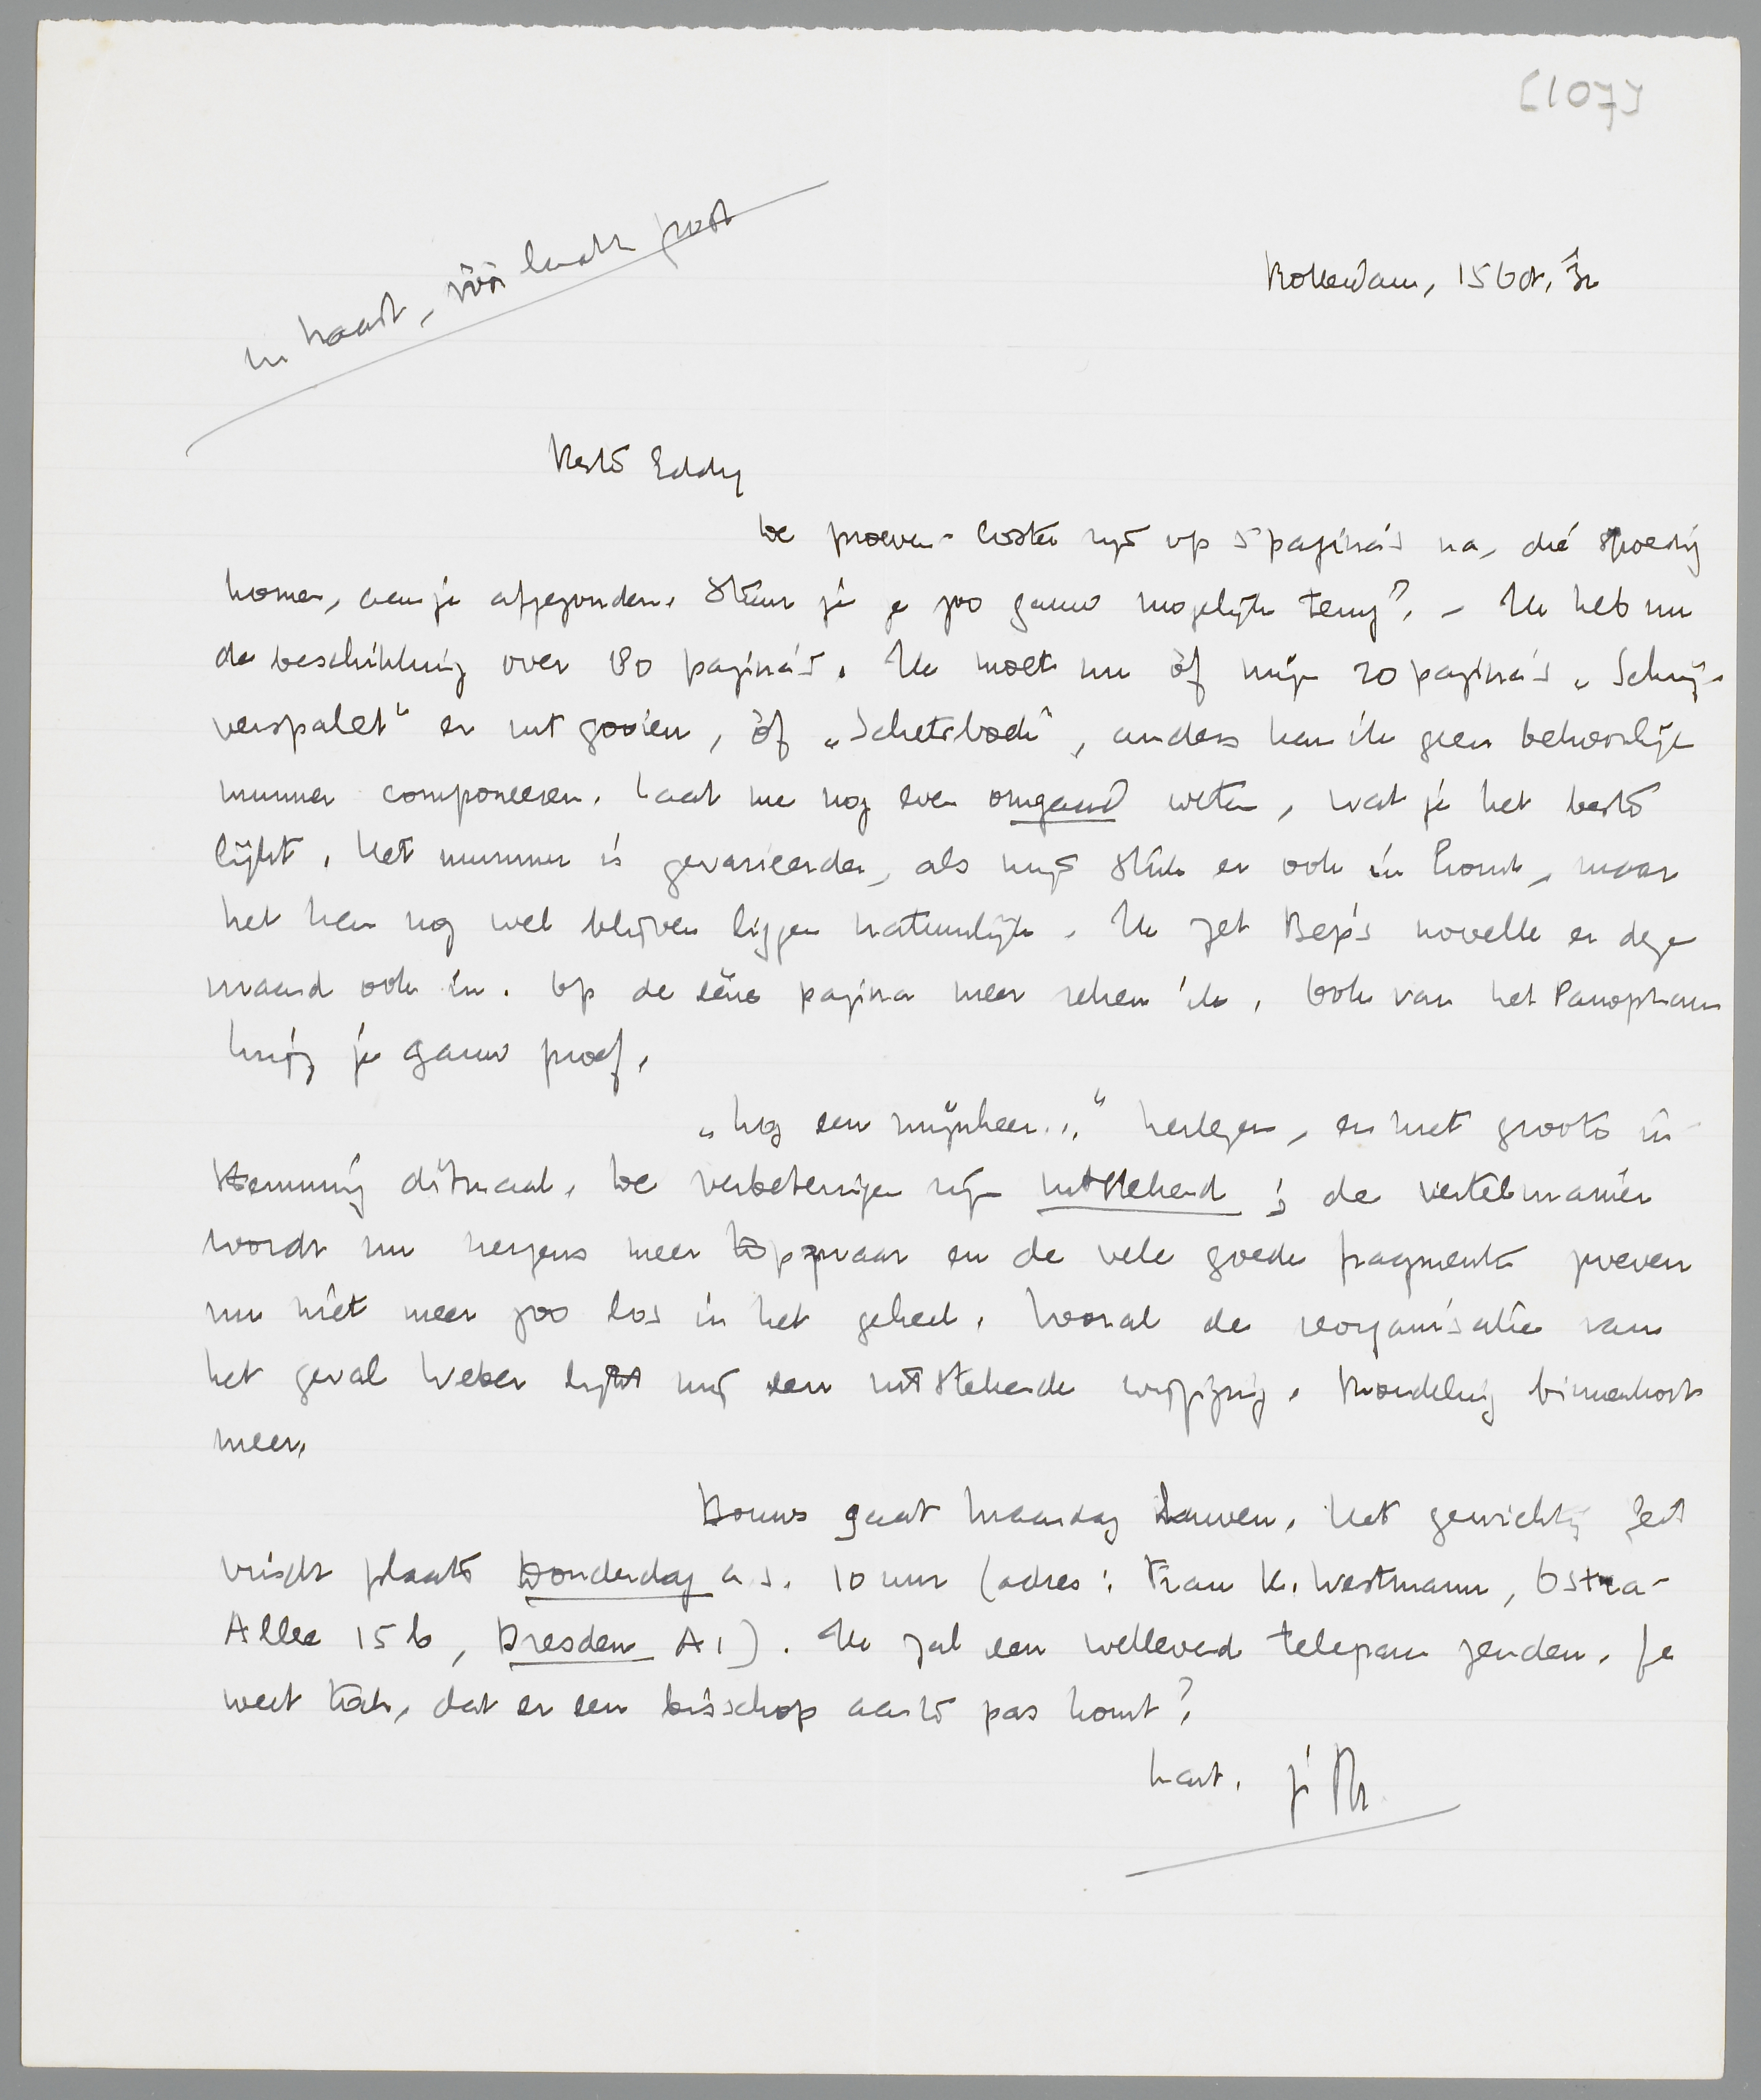 [107]
in haast, vóór laatste post
Rotterdam, 15 Oct. '32
Beste Eddy
De proeven-Coster zijn op 5 pagina's na, die spoedig
komen, aan je afgezonden. Stuur je ze zoo gauw mogelijk terug? – Ik heb nu
de beschikking over 180 pagina's. Ik moet nu òf mijn 20 pagina's „Schrij-
verspalet" er uit gooien, òf „Schetsboek", anders kan ik geen behoorlijk
nummer componeeren. Laat me nog even omgaand weten, wat je het beste
lijkt. Het nummer is gevarieerder, als mijn stuk er ook in komt, maar
het kan nog wel blijven liggen natuurlijk. Ik zet Bep's novelle er deze
maand ook in. Op de ééne pagina meer reken ik. Ook van het Panopticum
krijg je gauw proef.
„Nog een mijnheer..." herlezen, en met groote in-
stemming ditmaal. De verbeteringen zijn uitstekend; de vertelmanier
wordt nu nergens meer topzwaar en de vele goede fragmenten zweven
nu niet meer zoo los in het geheel. Vooral de reorganisatie van
het geval Weber lijkt mij een uitstekende wijziging. Mondeling binnenkort
meer.
Bouws gaat Maandag trouwen. Het gewichtig feit
vindt plaats Donderdag a.s. 10 uur (adres: Frau K. Westmann, Ostra-
Allee 15 b, Dresden A1). Ik zal een wellevend telegram zenden. Je
weet toch, dat er een bisschop aan te pas komt?
hart. je M